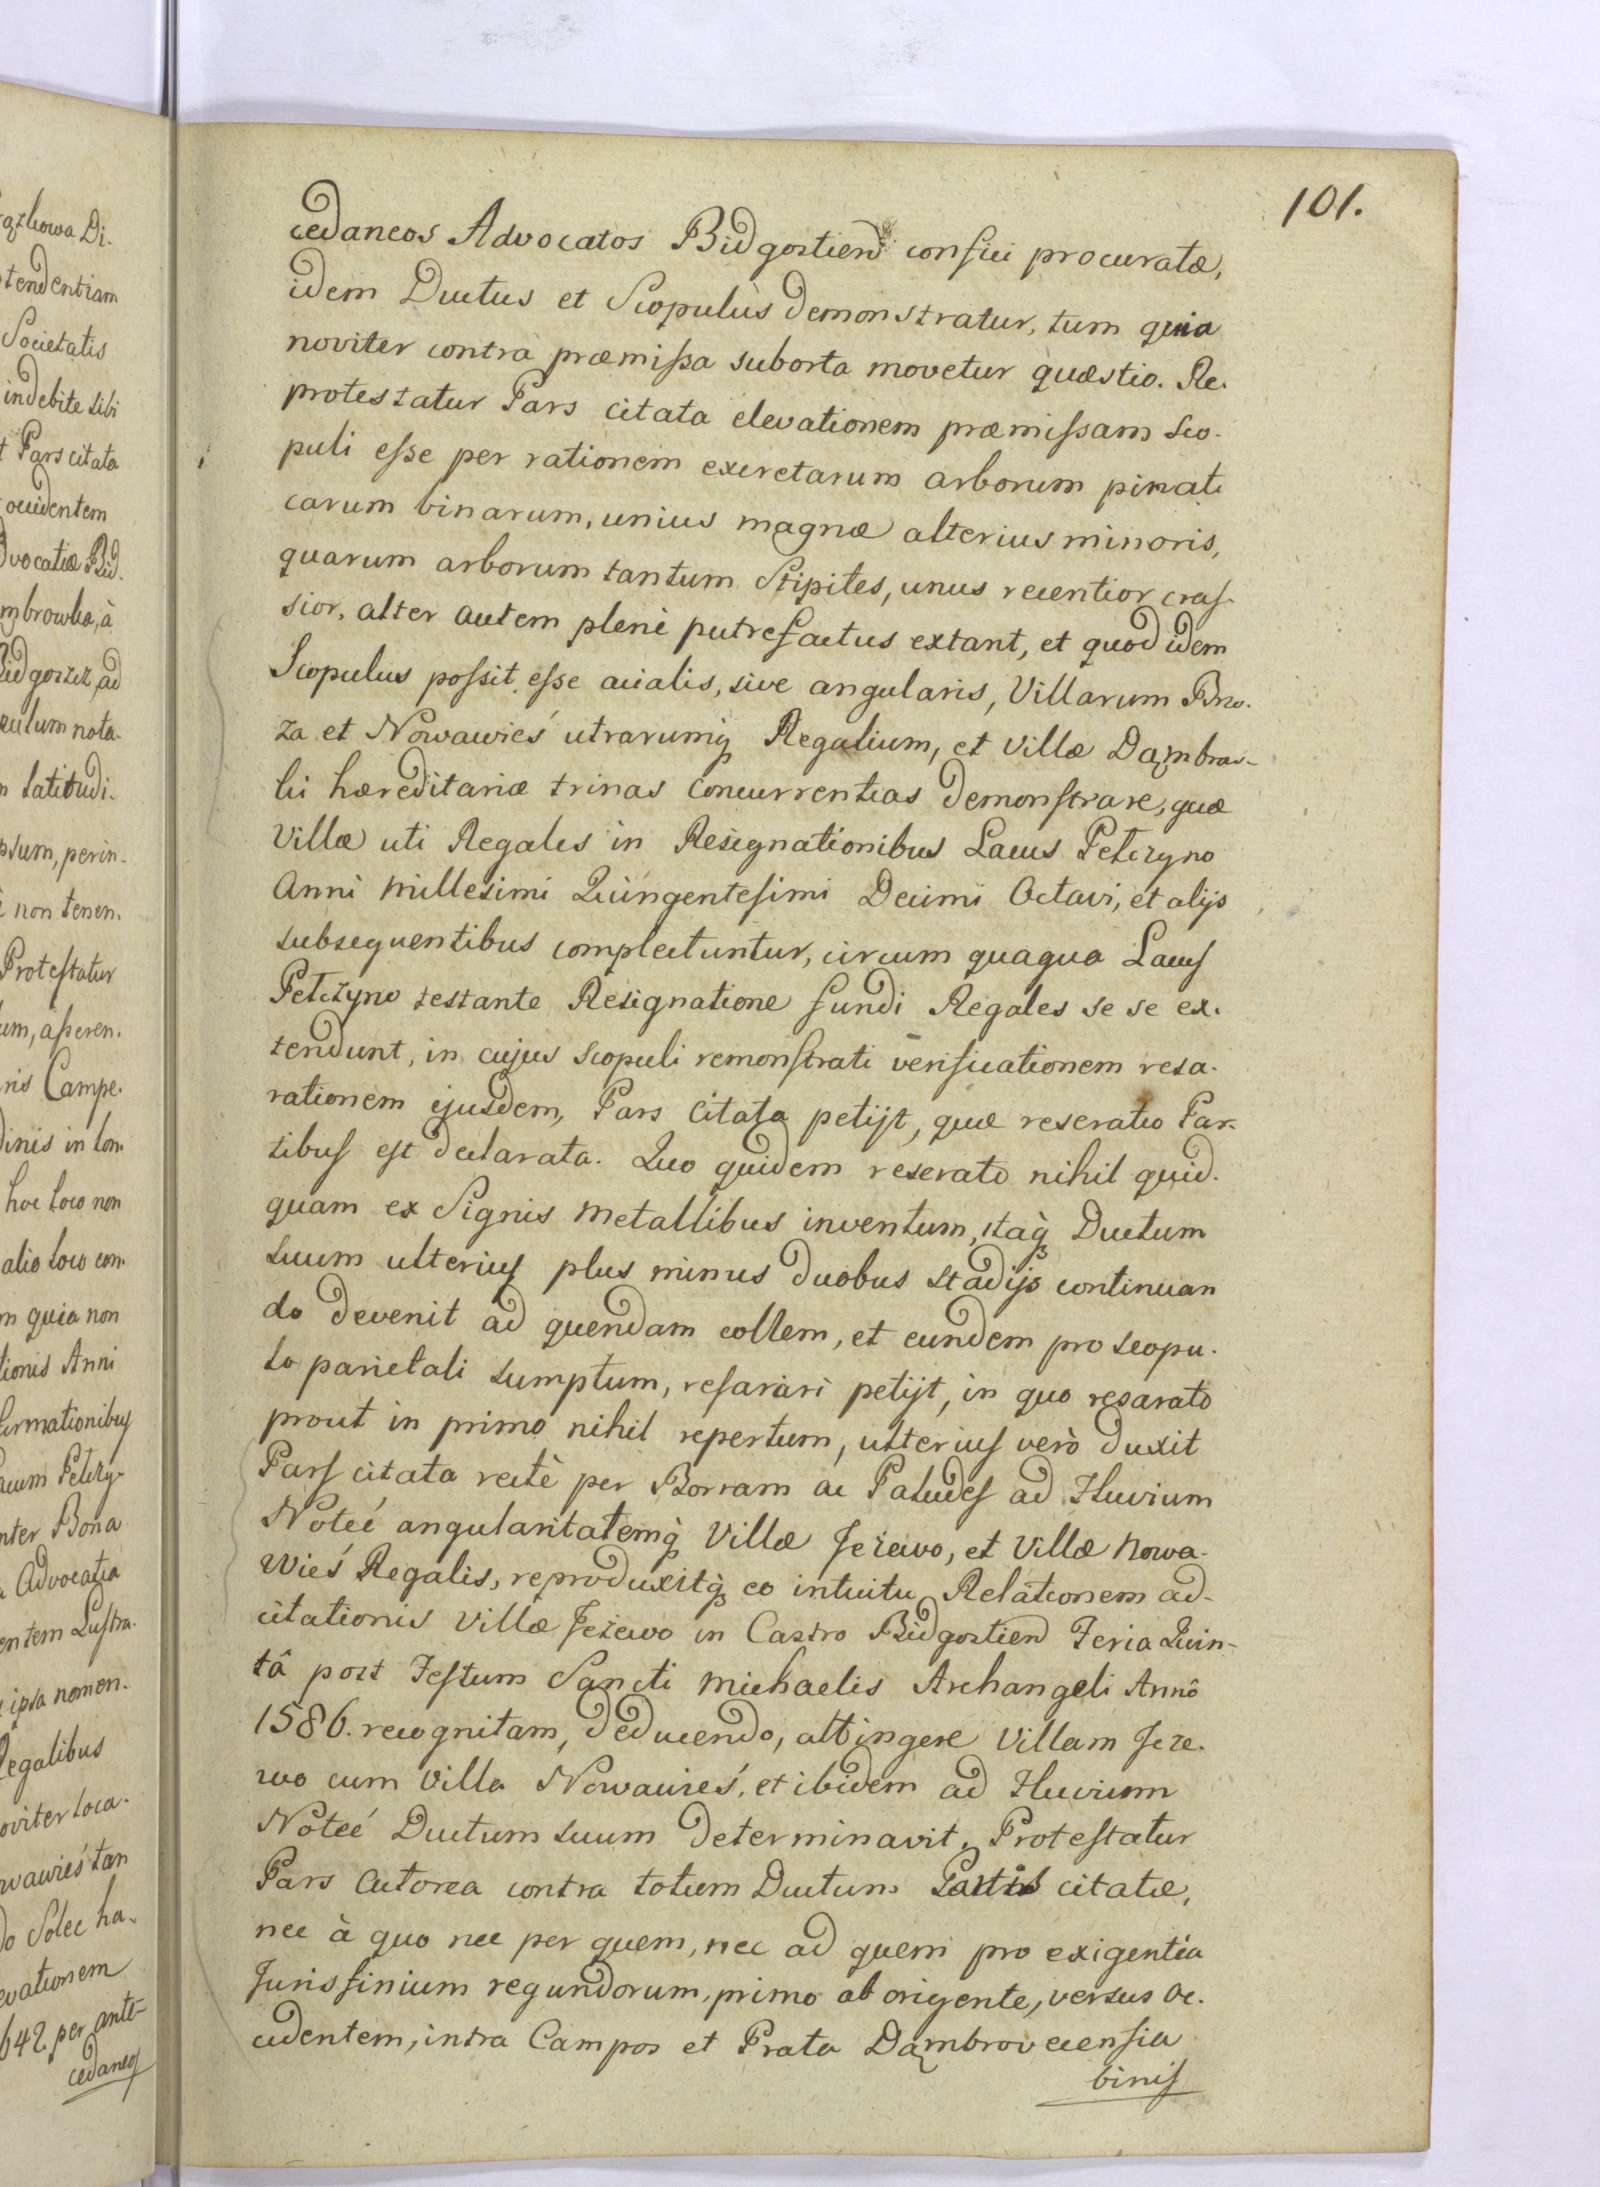 101.
cedaneos Advocatos Bidgostien confici procuratæ,
idem Ductus et Scopulus demonstratur, tum quia
noviter contra præmissa suborta movetur quæstio. Re-
protestatur Pars citata elevationem præmissam Sco-
puli esse per rationem excretarum arborum pinati
carum binarum, unius magnæ alterius minoris,
quarum arborum tantum Stipites, unus recentior cras-
sior, alter autem plenè putrefactus extant, et quod idem
Scopulus possit esse acialis, sive angularis, Villarum Brzo-
za et Nowawieś utrarumq Regalium, et Villæ Dąmbrow-
ki hæreditariæ trinas concurrentias demonstrare, quæ
Villæ uti Regales in Resignationibus Lacus Petczyno
Anni Millesimi Quingentesimi Decimi Octavi, et alijs
subsequentibus complectuntur, circum quaqua Lacus
Petczyno testante Resignatione fundi Regales se se ex-
tendunt, in cujus scopuli remonstrati verificationem resa-
rationem ejusdem, Pars Citata petijt, quæ reseratio Par-
tibus est declarata. Quo quidem reserato nihil quid-
quam ex Signis metallibus inventum, itaq Ductum
suum ulterius plus minus duobus stadijs continuan
do devenit ad quendam collem, et eundem pro scopu-
lo parietali sumptum, resarari petijt, in quo resarato
prout in primo nihil repertum, ulterius verò duxit
Pars citata rectè per Borram ac Paludes ad Fluvium
Noteć angularitatemq Villæ Jeżewo, et Villæ Nowa-
wieś Regalis, reproduxitq eo intuitu Relationem ad-
citationis Villæ Jeżewo in Castro Bidgostien Feria Quin-
tâ post Festum Sancti Michaelis Archangeli Annô
1586. recognitam, deducendo, attingere Villam Jeze-
wo cum Villa Nowawieś, et ibidem ad Fluvium
Noteć Ductum suum determinavit, Protestatur
Pars Actorea contra totum Ductum Partis citatæ,
nec à quo nec per quem, nec ad quem pro exigentia
Juris finium regundorum, primo ab origente, versus Oc-
cidentem, intra Campos et Prata Dąmbrovecensia
binis